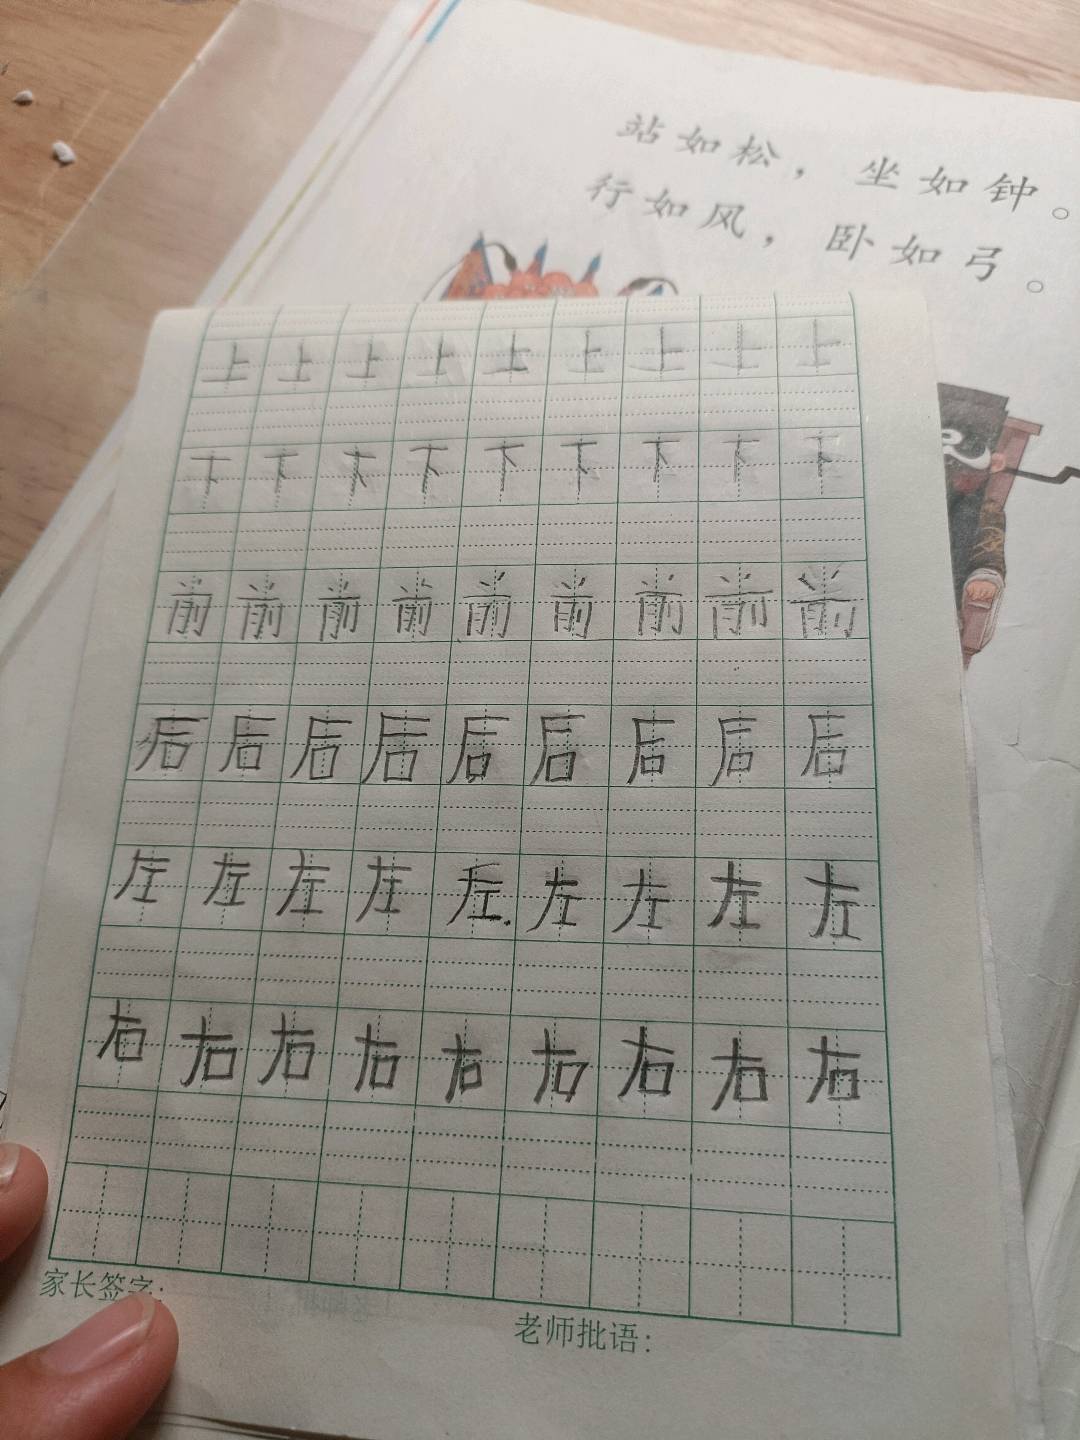 站如松，坐如钟。
行如风，卧如弓。
上上上上上上上上上
下下下下下下下下下
前前前前前前前前前
后后后后后后后后后
左左左左左左左左左
右右右右右右右右右
家长签字：
老师批语：